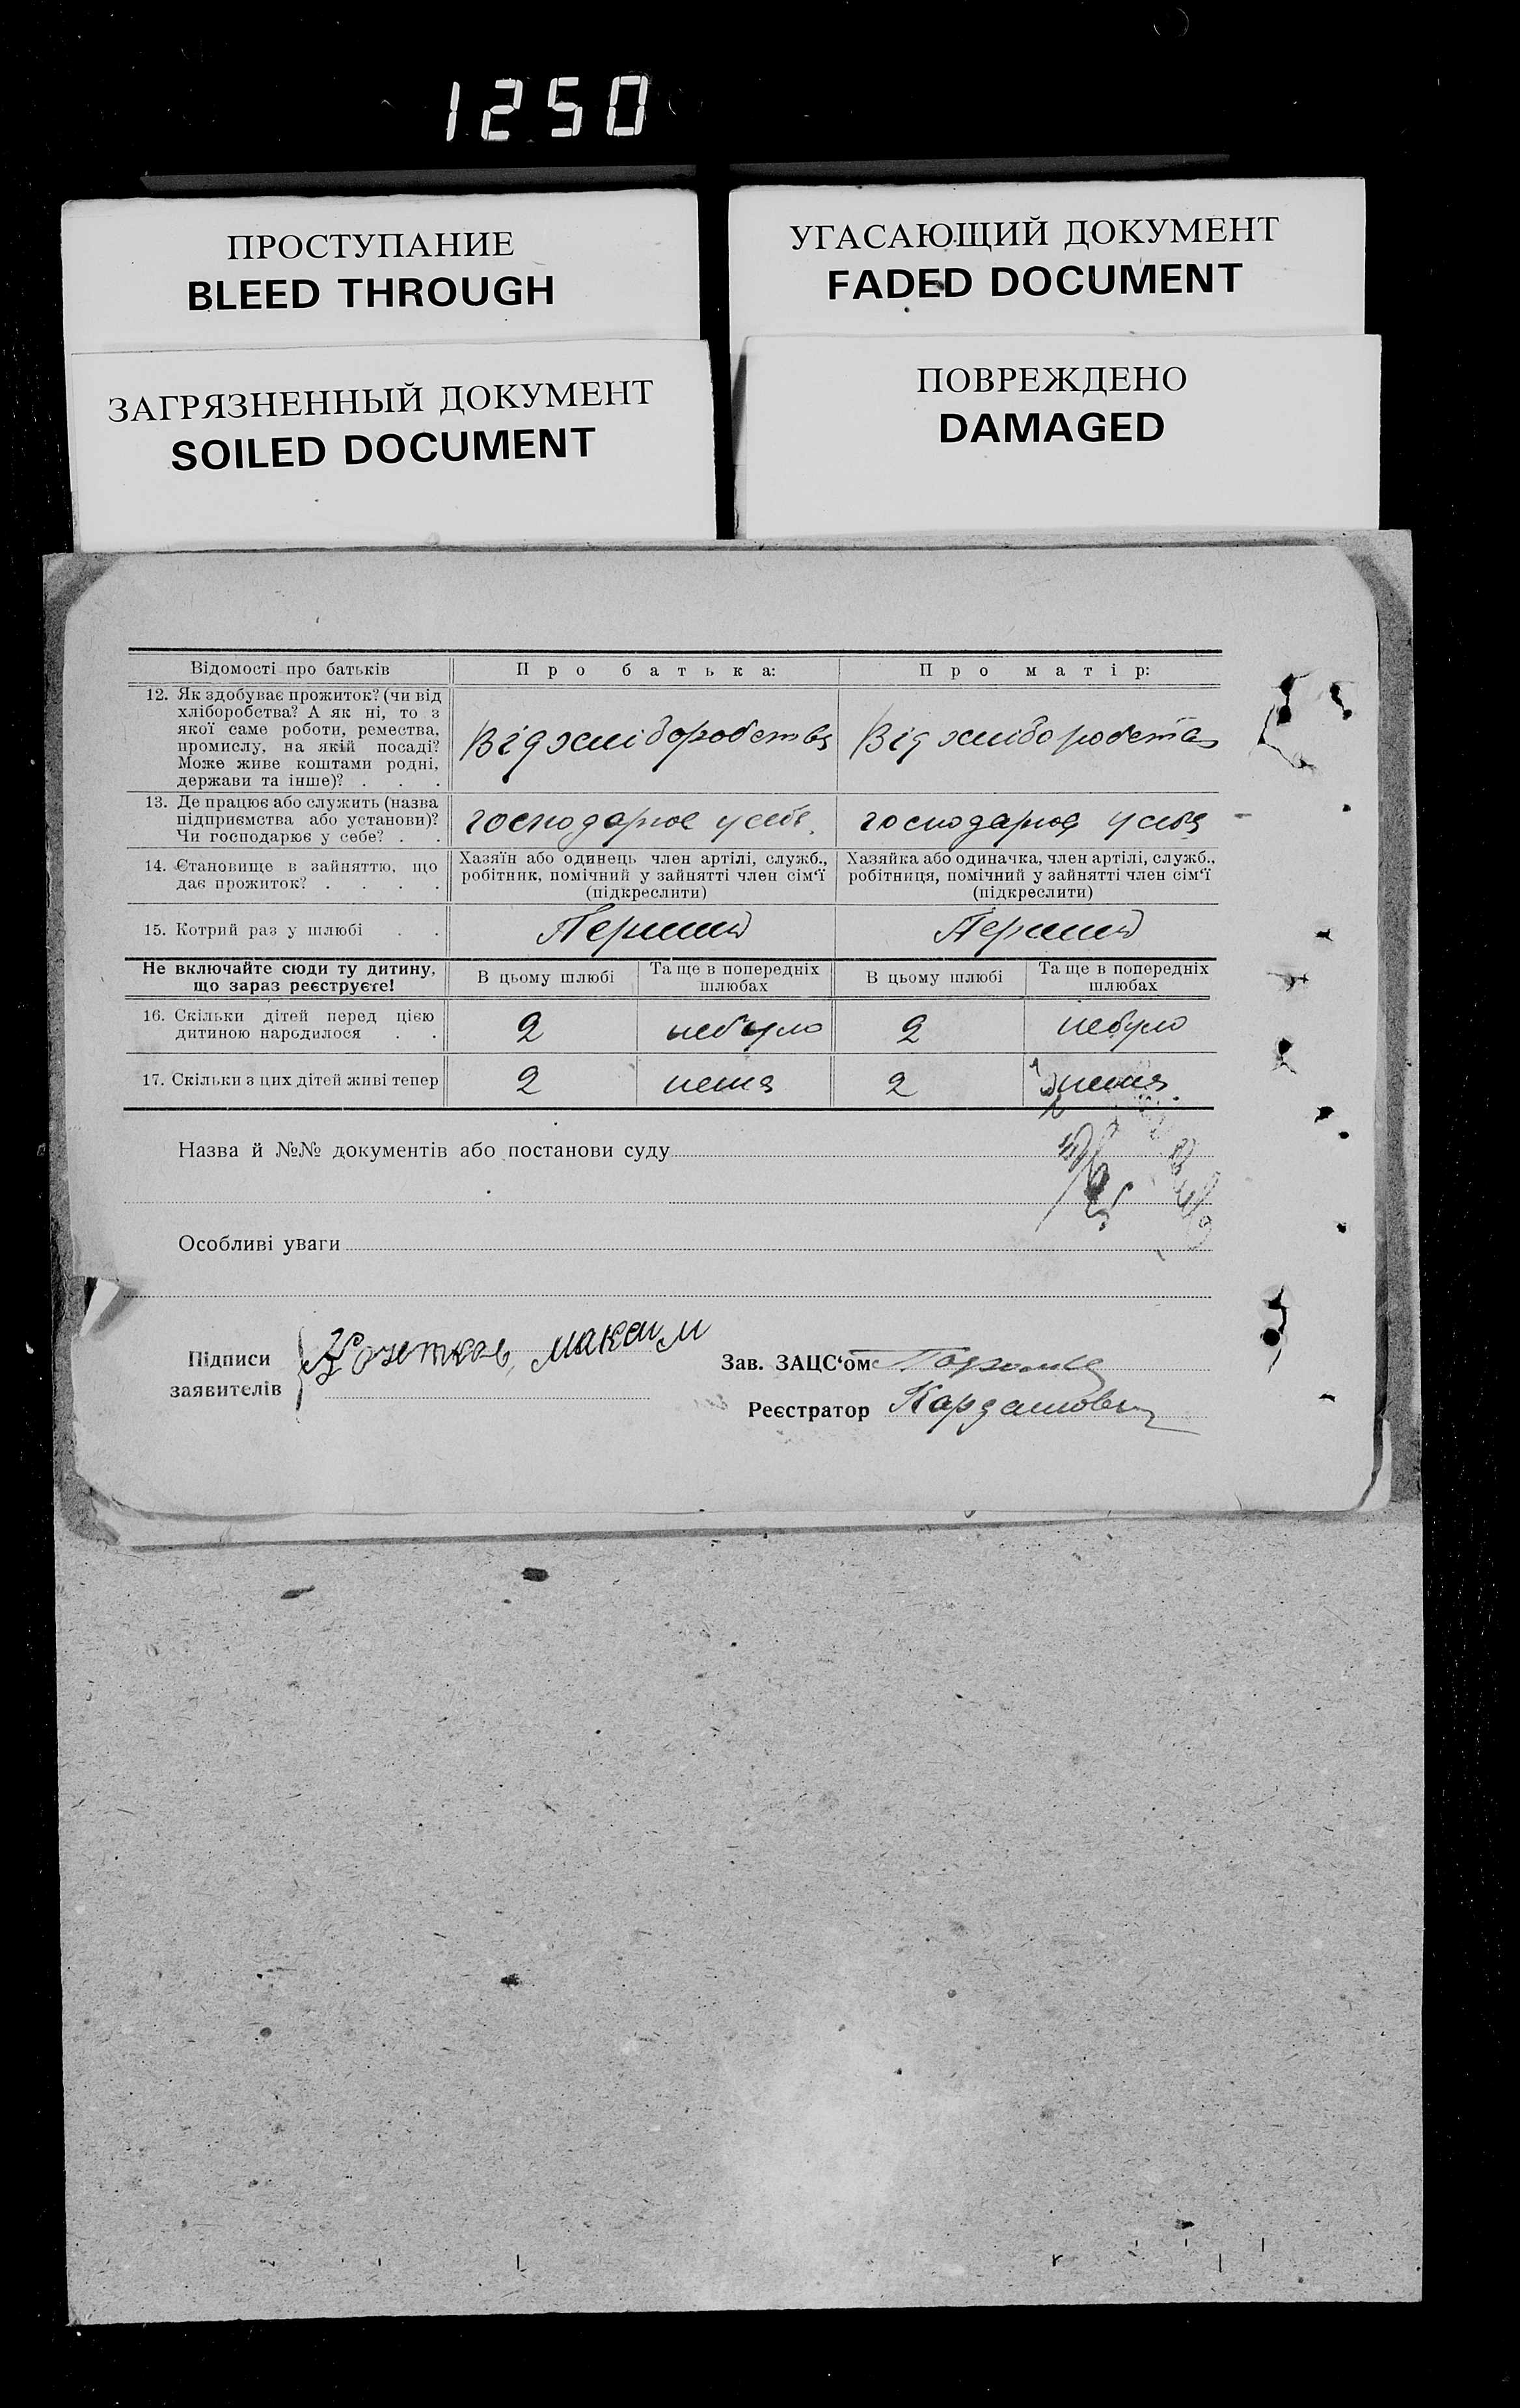 1250
ПРОСТУПАНИЕ
BLEED THROUGH
УГАСАЮЩИЙ ДОКУМЕНТ
FADED DOCUMENT
ЗАГРЯЗНЕННЫЙ ДОКУМЕНТ
SOILED DOCUMENT
ПОВРЕЖДЕНО
DAMAGED
Відомості про батьків
Про батька:
Про матір:
12. Як здобуває прожиток? (чи від
хліборобства? А як ні, то з
якої саме роботи, ремества,
промислу, на якій посаді?
Може живе коштами родні,
держави та інше)? . . .
Від хліборобства
Від хліборобства
13. Де працює або служить (назва
підприємства або установи)?
Чи господарює у себе? . .
господарює у себе
господарює у себя
14. Становище в зайняттю, що
дає прожиток? . . . .
Хазяїн або одинець член артілі, служб.,
робітник, помічний у зайнятті член сім'ї
(підкреслити)
Хазяйка або одиначка, член артілі, служб.,
робітниця, помічний у зайнятті член сім'ї
(підкреслити)
15. Котрий раз у шлюбі . .
Перший
Перший
Не включайте сюди ту дитину,
що зараз реєструєте!
В цьому шлюбі
Та ще в попередніх
шлюбах
В цьому шлюбі
Та ще в попередніх
шлюбах
16. Скільки дітей перед цією
дитиною народилося . .
2
небуло
2
небуло
17. Скільки з цих дітей живі тепер
2
нема
2
нема
Назва й №№ документів або постанови суду
Особливі уваги
Підписи
заявителів
максим
Зав. ЗАЦС'ом
Реєстратор